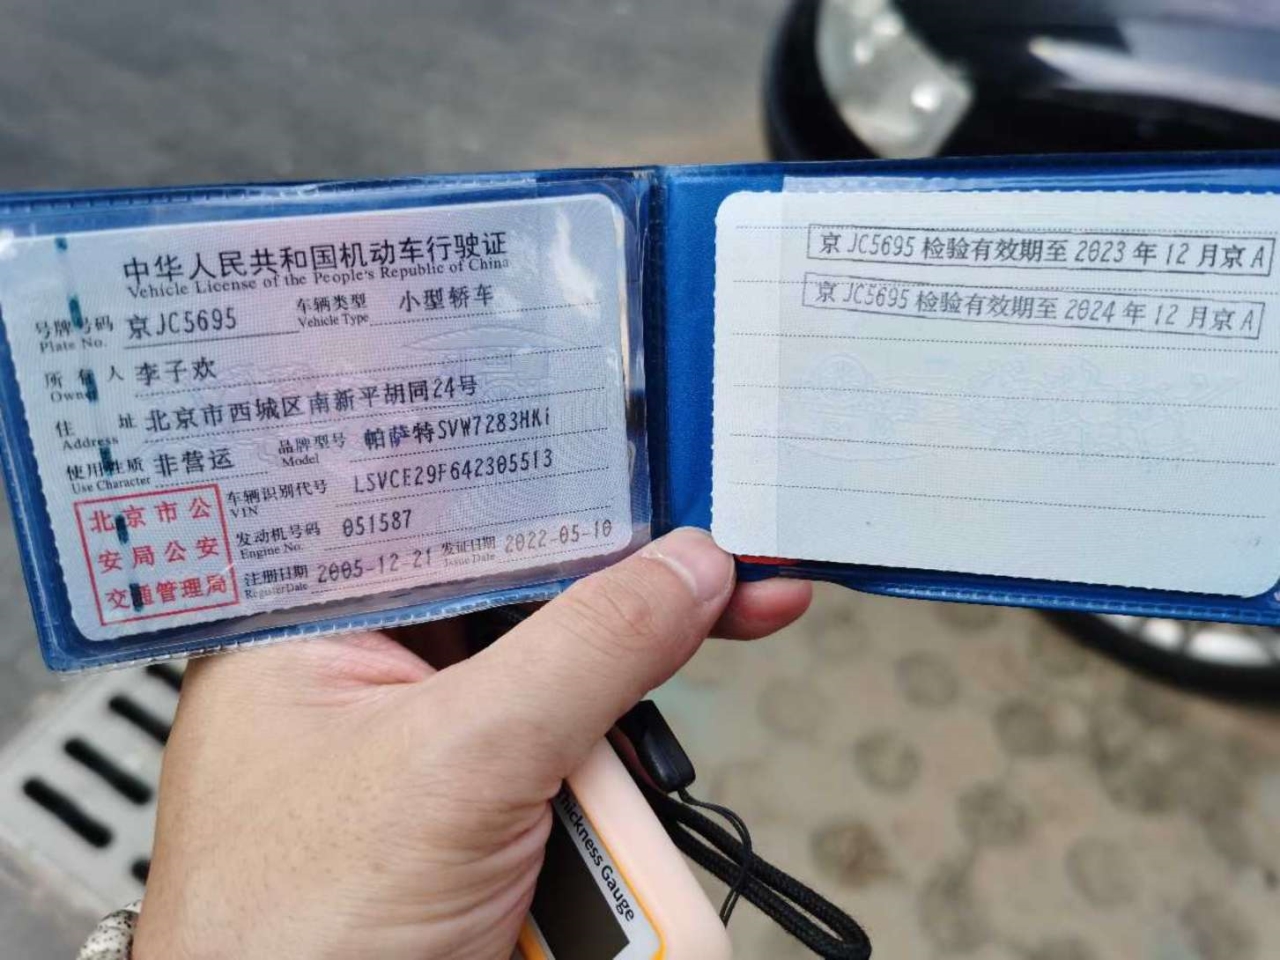 中华人民共和国机动车行驶证
Vehicle License of the People's Republic of China
号牌号码 京JC5695 车辆类型 小型轿车
Plate No. Vehicle Type
所有人 李子欢
Owner
住址 北京市西城区南新平胡同24号
Address
使用性质 非营运 品牌型号 帕萨特SVW7283HKi
Use Character Model
北京市公
安局公安
交通管理局
车辆识别代号 LSVCE29F642305513
VIN
发动机号码 051587
Engine No.
注册日期 2005-12-21 发证日期 2022-05-10
Register Date Issue Date
京JC5695检验有效期至2023年12月京A
京JC5695检验有效期至2024年12月京A
Thickness Gauge